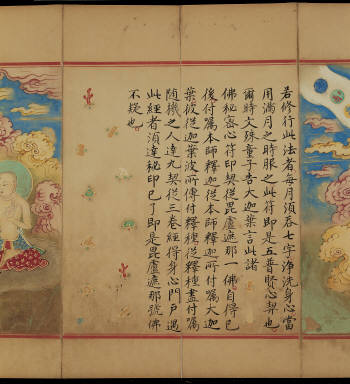 若修行此法者每月須吞七字淨洗身心當
用滿月之時服之此符即是五普賢心契也
爾時文殊童子告大迦葉言此諸
佛秘密心符印契從毘盧遮那一佛自得已
後付囑本師釋迦從本師釋迦所付囑大迦
葉彼從迦葉波所傳付釋種從釋種盡付囑
随機之人達九契從三卷經得身心門戶遇
此經者須達秘印已了即是毘盧遮那號佛
不疑也